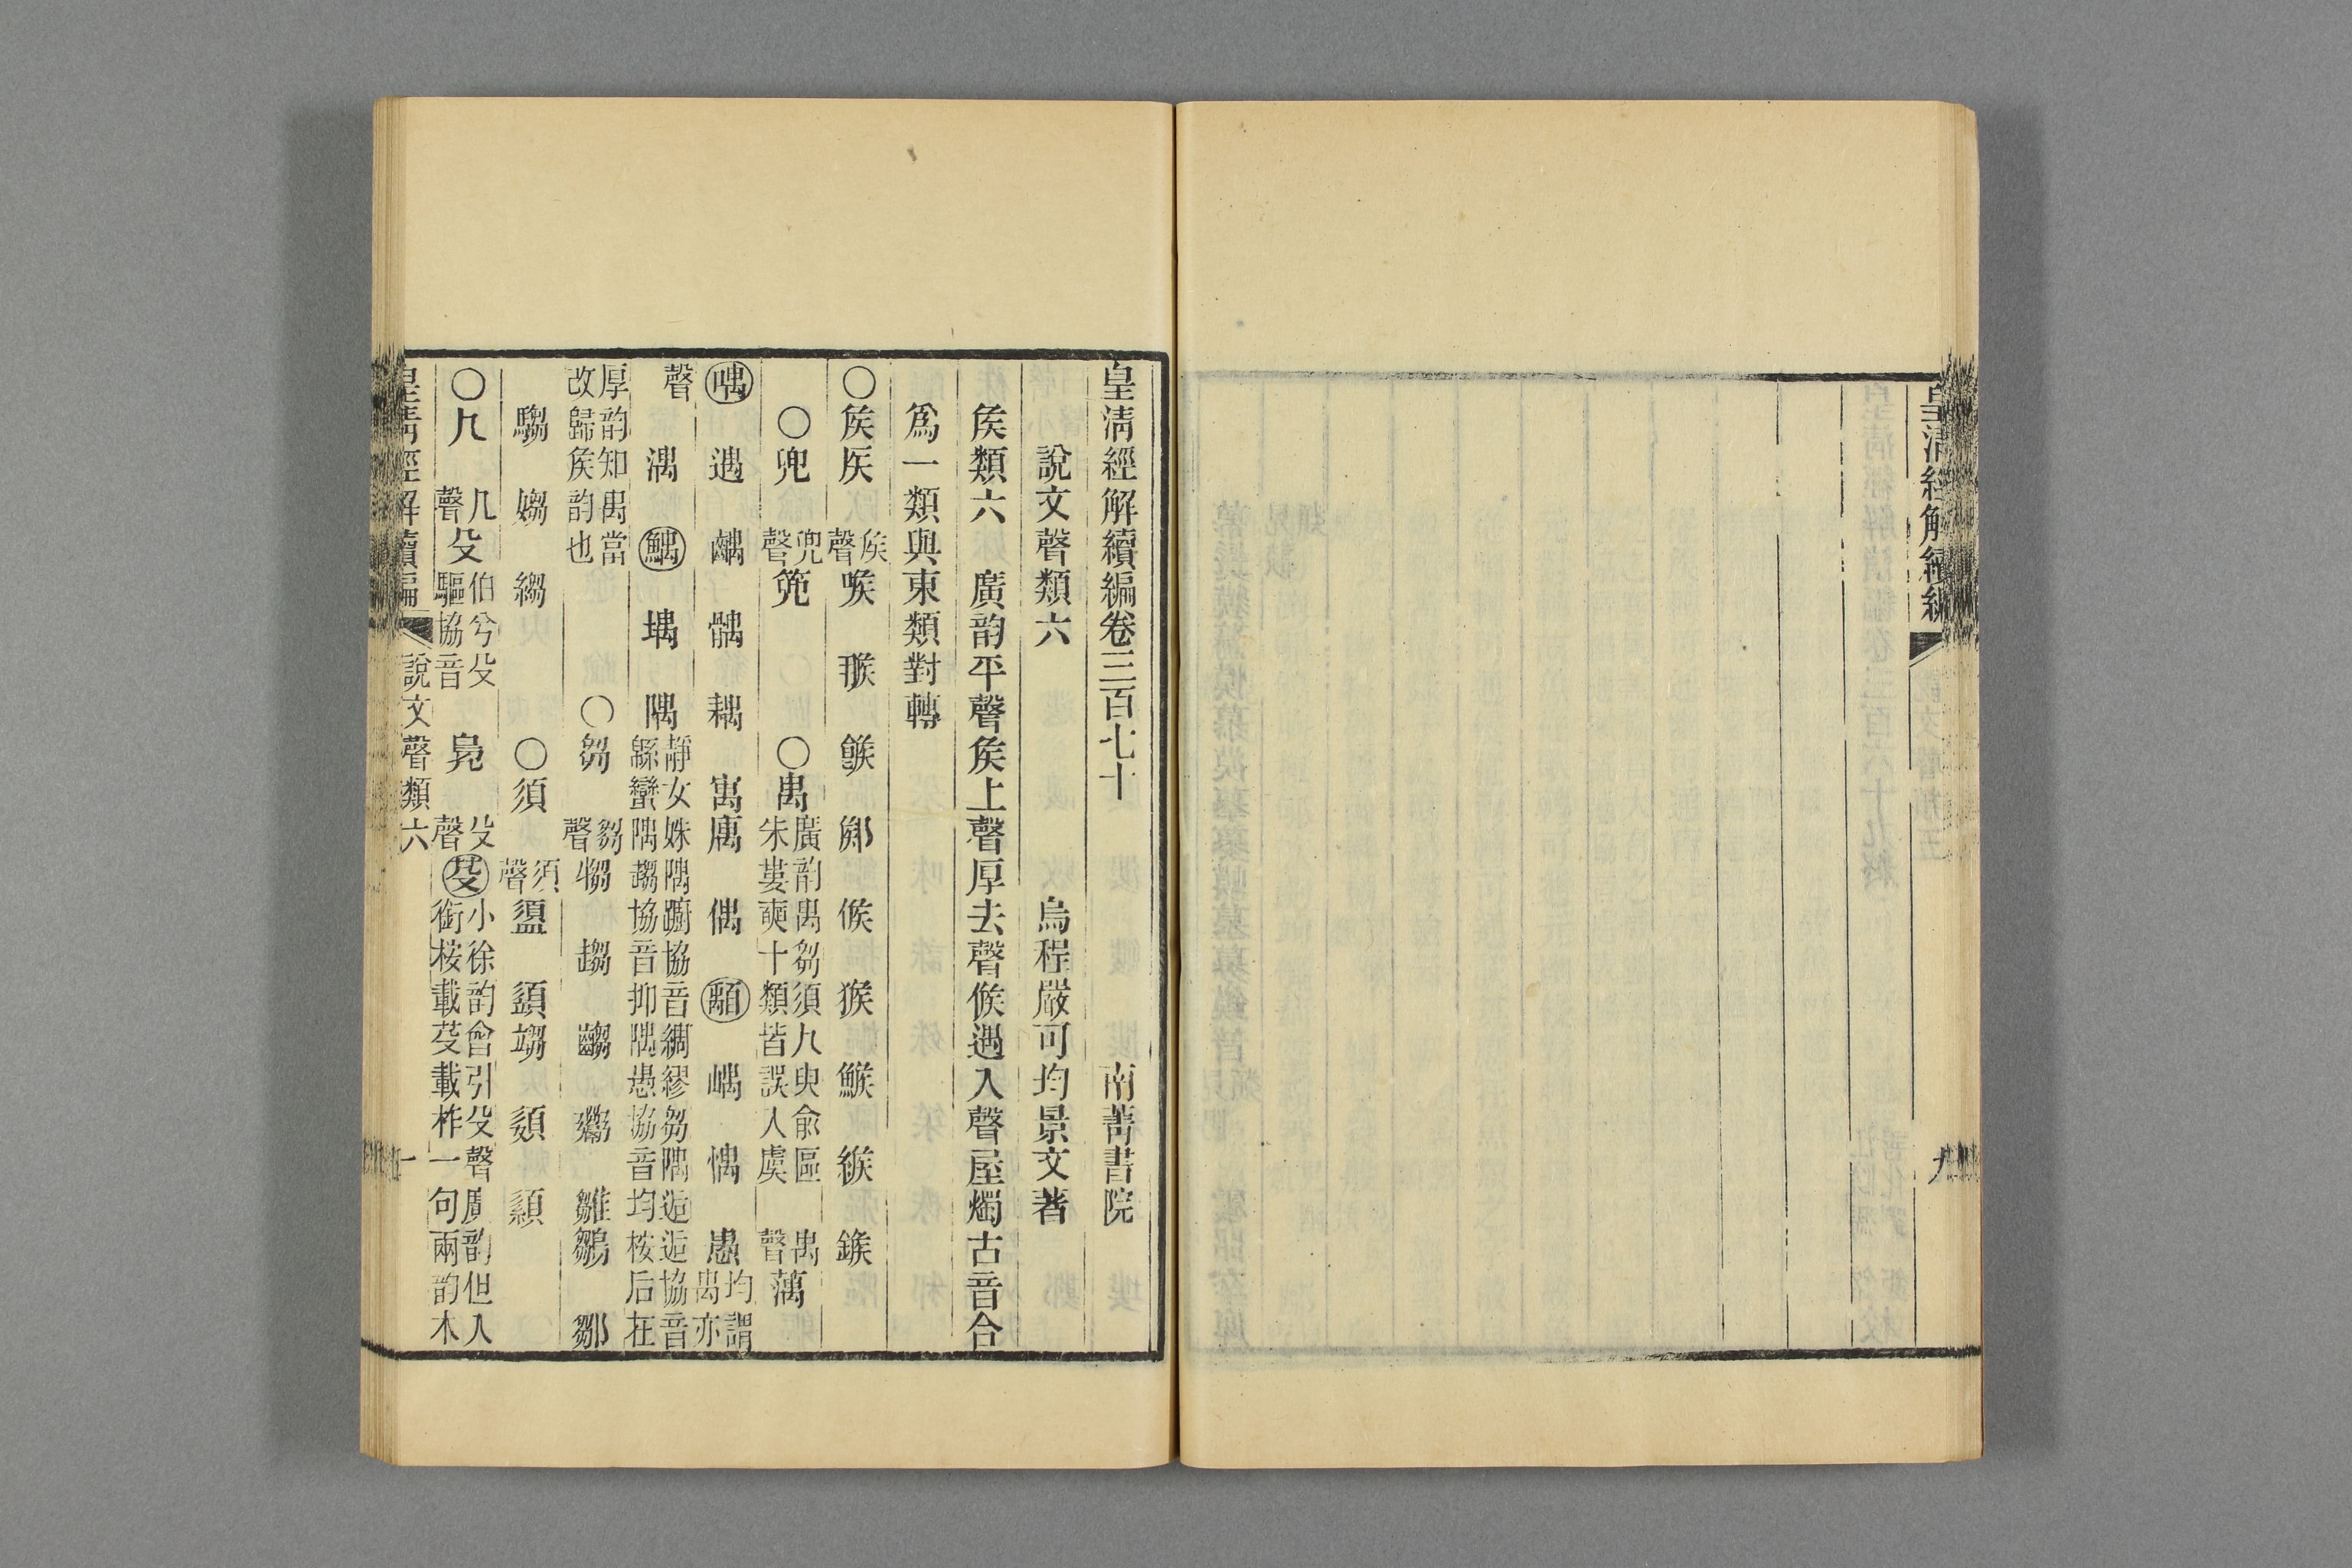 皇清經解續編
九
皇清經解續編卷三百七十 南菁書院
說文聲類六 烏程嚴可均景文著
矦類六 廣韵平聲矦上聲厚去聲候遇入聲屋燭古音合
爲一類與東類對轉
○矦𥎦 矦聲 喉 䂉 餱 鄇 候 猴 鯸 緱 鍭
○兜 兜聲 篼 ○禺 廣韵禺芻須九臾俞區朱婁耎十類皆誤人虞 禺聲 萬
喁 遇 齵 髃 耦 寓 庽 偶 嵎 愚 均謂禺亦
聲 湡 鰅 堣 隅 靜女姝隅躕協音綢繆芻隅逅逅協音緜蠻隅趨協音抑隅愚協音均桉后在
厚韵知禺當改歸矦韵也 ○芻 芻聲 犓 趨 齺 雛鶵 鄒
騶 媰 縐 ○須 須聲 盨 䇓 頾
○几 几聲 殳 伯兮殳驅協音 鳧 殳聲 小徐韵會引殳聲廣韵但入銜桉載芟載柞一句兩韵木
皇清經解續編 說文聲類六 一